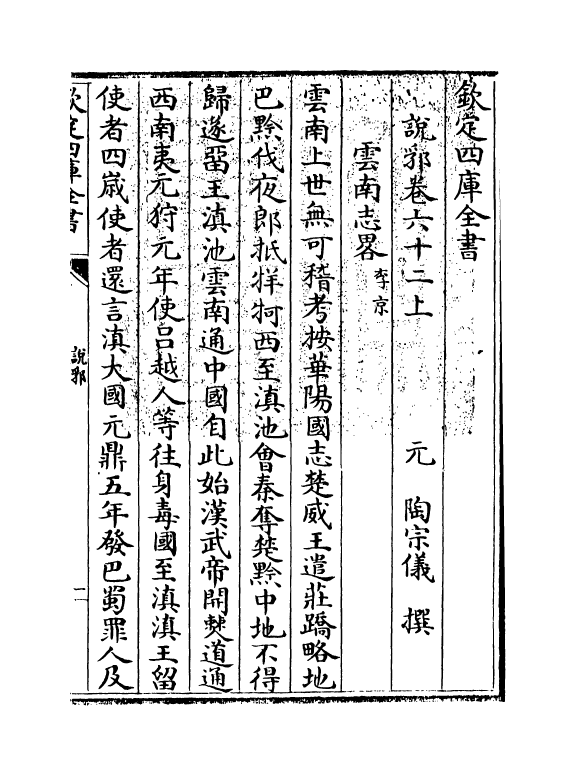 欽定四庫全書
說郛卷六十二上
元 陶宗儀 撰
雲南志畧 李京
雲南上世無可稽考按華陽國志楚威王遣莊蹻略地
巴黔伐夜郎抵牂牁西至滇池會秦奪楚黔中地不得
歸遂留王滇池雲南通中國自此始漢武帝開僰道通
西南夷元狩元年使吕越人等往身毒國至滇滇王留
使者四歲使者還言滇大國元鼎五年發巴蜀罪人及
欽定四庫全書
說郛
一